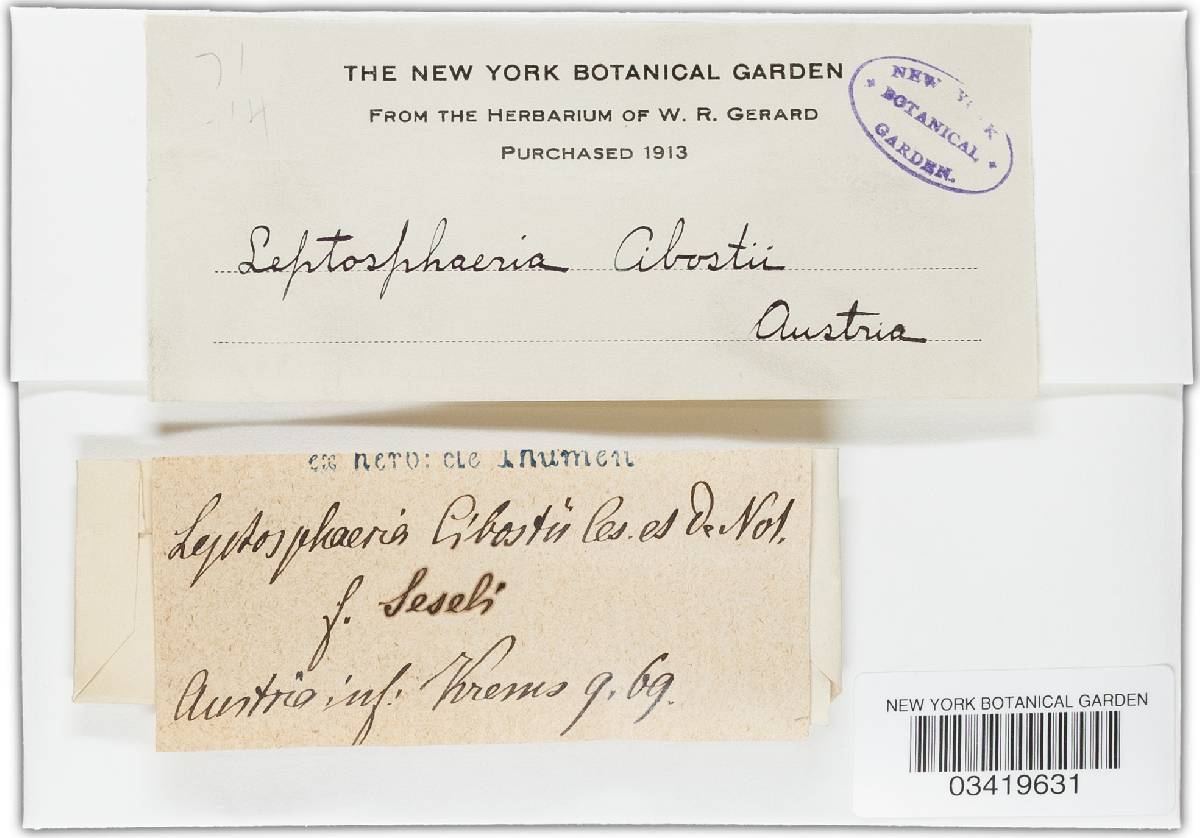 THE NEW YORK BOTANICAL GARDEN
FROM THE HERBARIUM OF W. R. GERARD
PURCHASED 1913
NEW YORK
* BOTANICAL *
GARDEN.
Leptosphaeria Cibostii
Austria
ex herb: de Thümen
Leptosphaeria Cibostii Ces. et De Not.
f. Seseli
Austria inf: Krems 9. 69.
NEW YORK BOTANICAL GARDEN
03419631